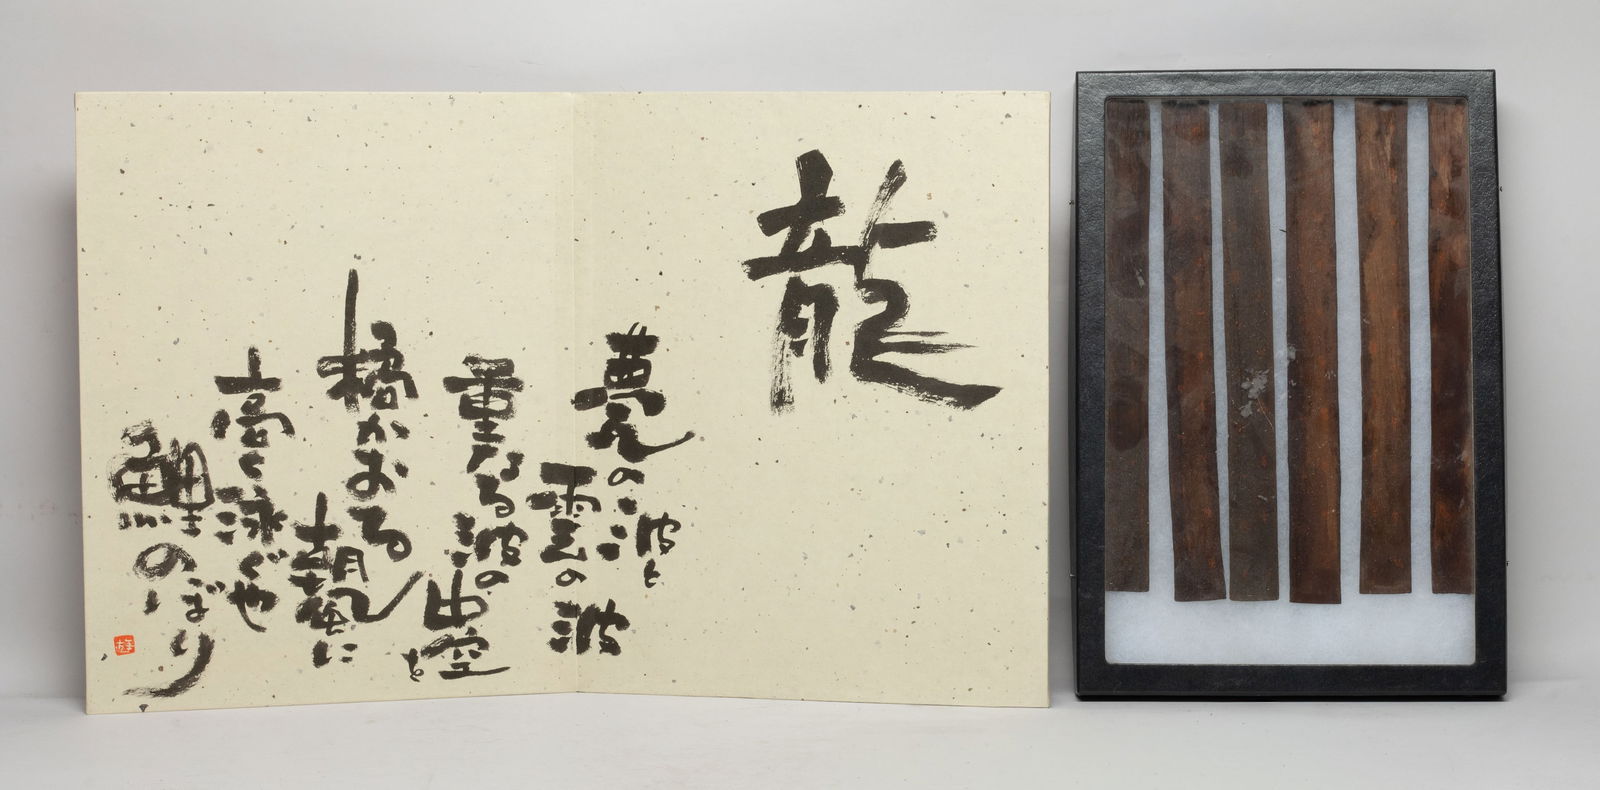 龍
甍の波と
雲の波
重なる波の
中空を
橘かおる
朝風に
高く泳ぐや
鯉のぼり